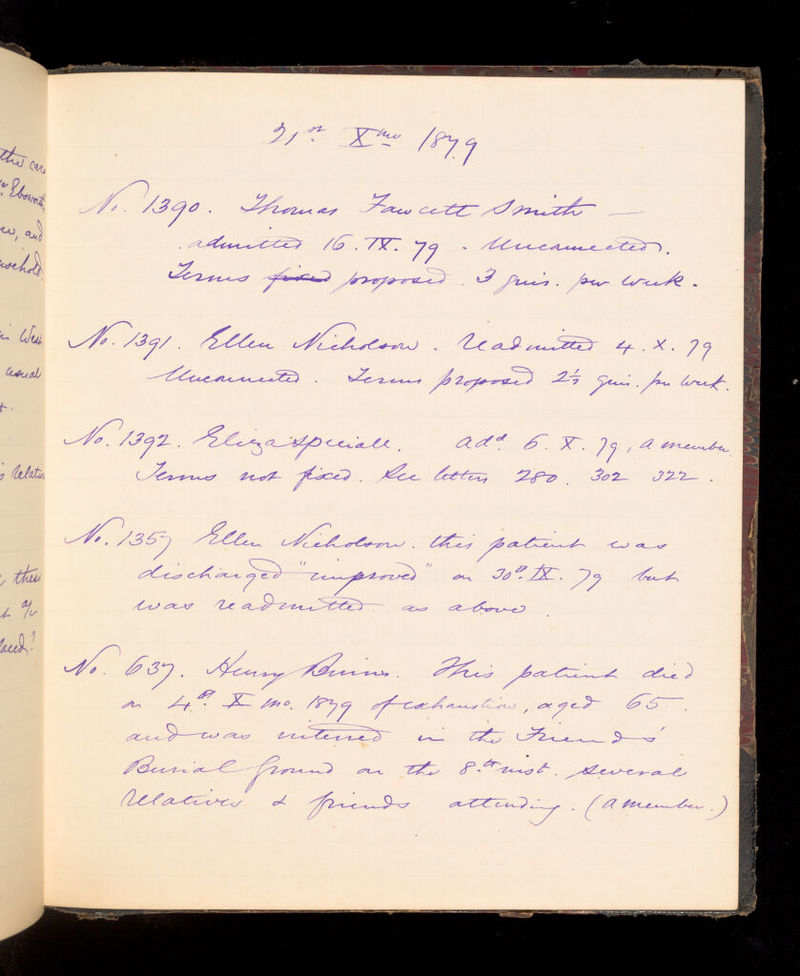 the care
Ebsworth
and
household
West
usual
relatives
these
21st Xmo 1879
No. 1390. Thomas Fawcett Smith —
admitted 16. IX. 79. Unconnected.
Terms fixed proposed. 3 guis. per week.
No. 1391. Ellen Nicholson. Readmitted 4. X. 79
Unconnected. Terms proposed guis. per week.
No. 1392. Eliza Speciall. add. 6. X. 79, a member.
Terms not fixed. See letters 280. 302 322.
No. 1357 Ellen Nicholson. this patient was
discharged "improved" on 30th. IX. 79 but
was readmitted as above.
No. 637. Henry Binns. This patient died
on 4th. X mo. 1879 of exhaustion, aged 65.
and was interred in the Friends'
Burial Ground on the 8th inst. several
relatives & friends attending. (a member.)